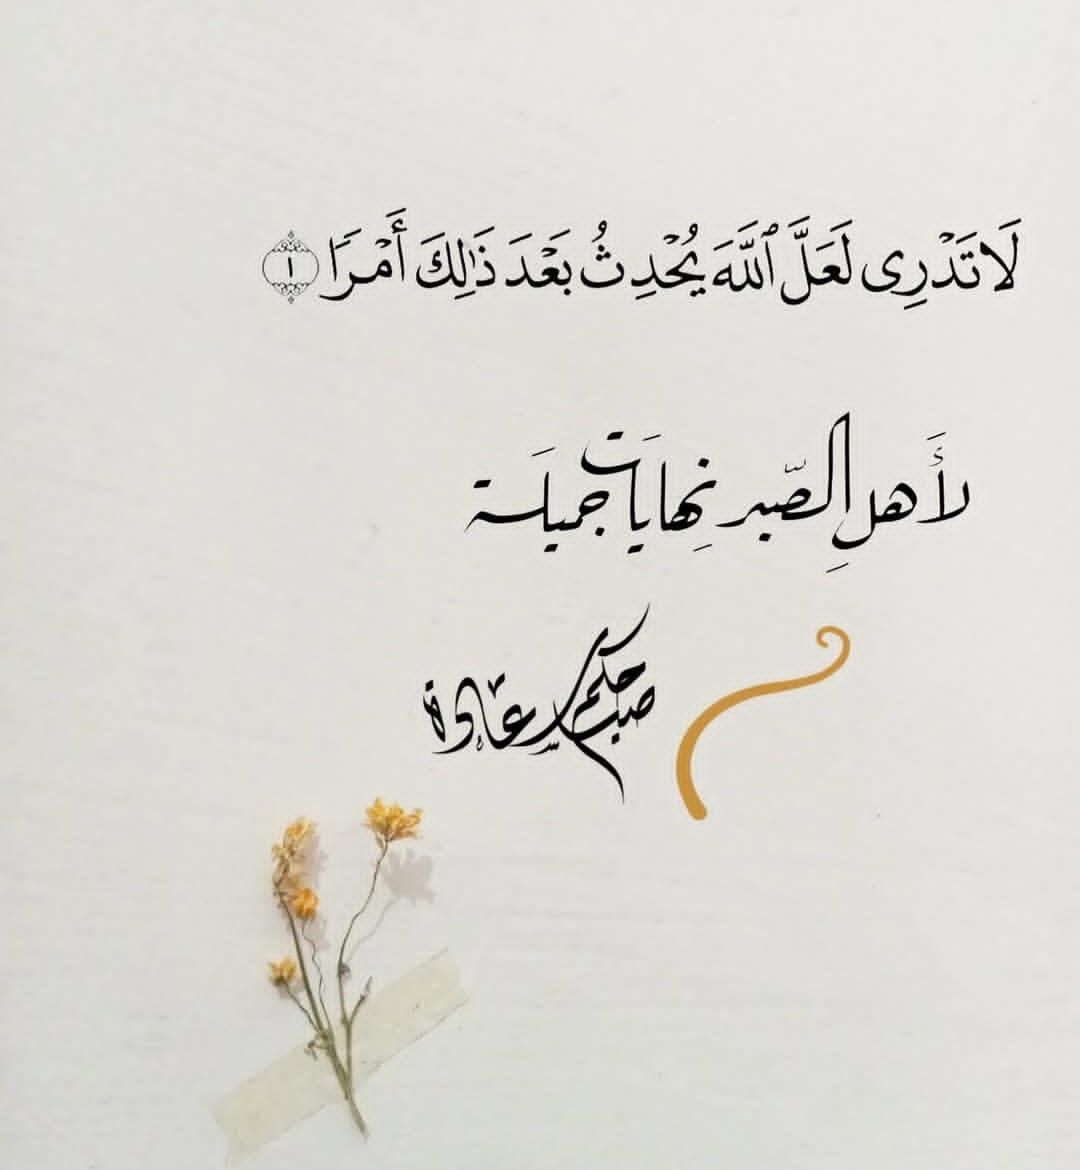 لَا تَدْرِى لَعَلَّ ٱللَّهَ يُحْدِثُ بَعْدَ ذَٰلِكَ أَمْرًا ١
لأَهلِ الصّبر نِهايَات جميلَة
صباحكم سعادة